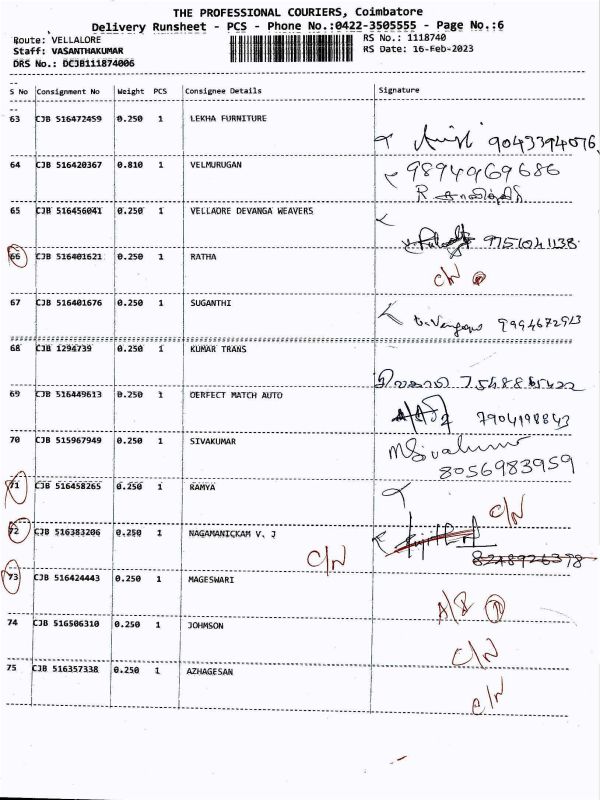 THE PROFESSIONAL COURIERS, Coimbatore
Delivery Runsheet - PCS - Phone No.:0422-3505555 - Page No.:6
Route: VELLALORE RS No.: 1118740
Staff: VASANTHAKUMAR RS Date: 16-Feb-2023
DRS No.: DCJB111874006
S No Consignment No Weight PCS Consignee Details Signature
63 CJB 516472459 0.250 1 LEKHA FURNITURE
9043394076
64 CJB 516420367 0.810 1 VELMURUGAN 9894969686
R
65 CJB 516456041 0.250 1 VELLAORE DEVANGA WEAVERS
9751041138
66 CJB 516401621 0.250 1 RATHA
C/N
67 CJB 516401676 0.250 1 SUGANTHI
9994672913
68 CJB 1294739 0.250 1 KUMAR TRANS
69 CJB 516449613 0.250 1 OERFECT MATCH AUTO
7904198843
70 CJB 515967949 0.250 1 SIVAKUMAR M Sivakumar
8056983959
71 CJB 516458265 0.250 1 RAMYA
C/N
72 CJB 516383206 0.250 1 NAGAMANICKAM V. J
C/N
73 CJB 516424443 0.250 1 MAGESWARI
74 CJB 516506310 0.250 1 JOHMSON
C/N
75 CJB 516357338 0.250 1 AZHAGESAN
C/N